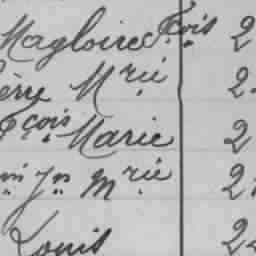 Magloire Fçois 2
Mrie 2
Fçois Marie 2
Jn Mrie 2
Louis 2